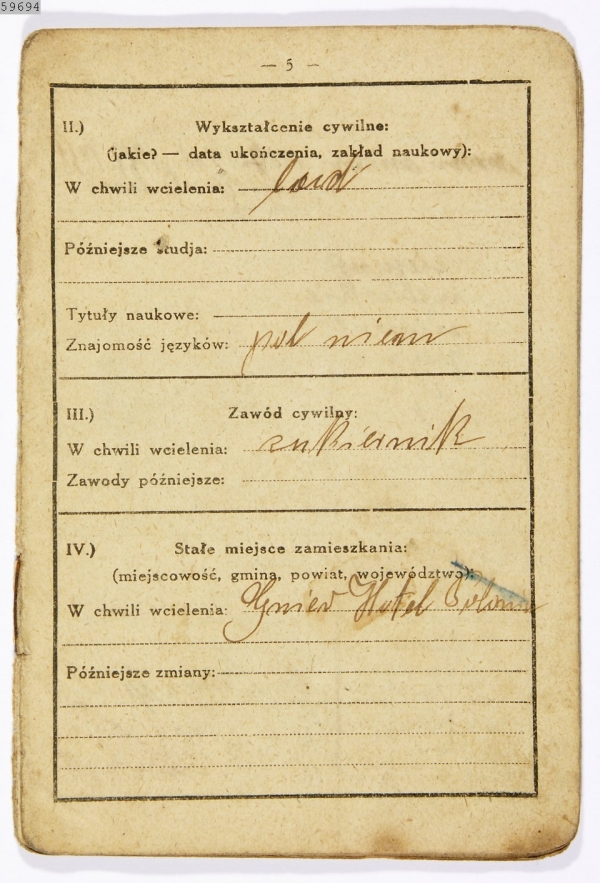 59694
— 5 —
II.) Wykształcenie cywilne:
(jakie? — data ukończenia, zakład naukowy):
W chwili wcielenia:
Późniejsze studja:
Tytuły naukowe:
Znajomość języków: pol niem
III.) Zawód cywilny:
W chwili wcielenia: cukiernik
Zawody późniejsze:
IV.) Stałe miejsce zamieszkania:
(miejscowość, gmina, powiat, województwo):
W chwili wcielenia: Gniew Hotel
Późniejsze zmiany: